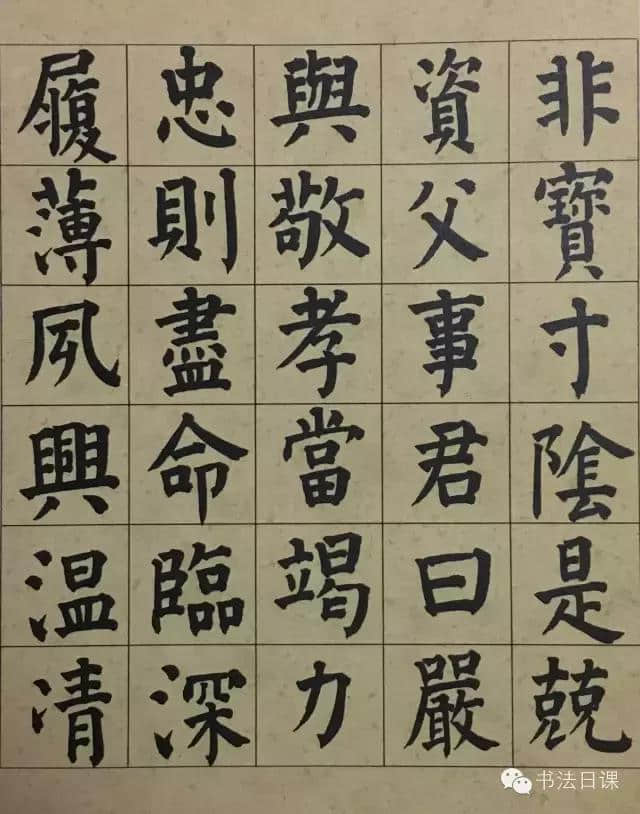 非寶寸陰是兢
資父事君曰嚴
與敬孝當竭力
忠則盡命臨深
履薄夙興温清
书法日课